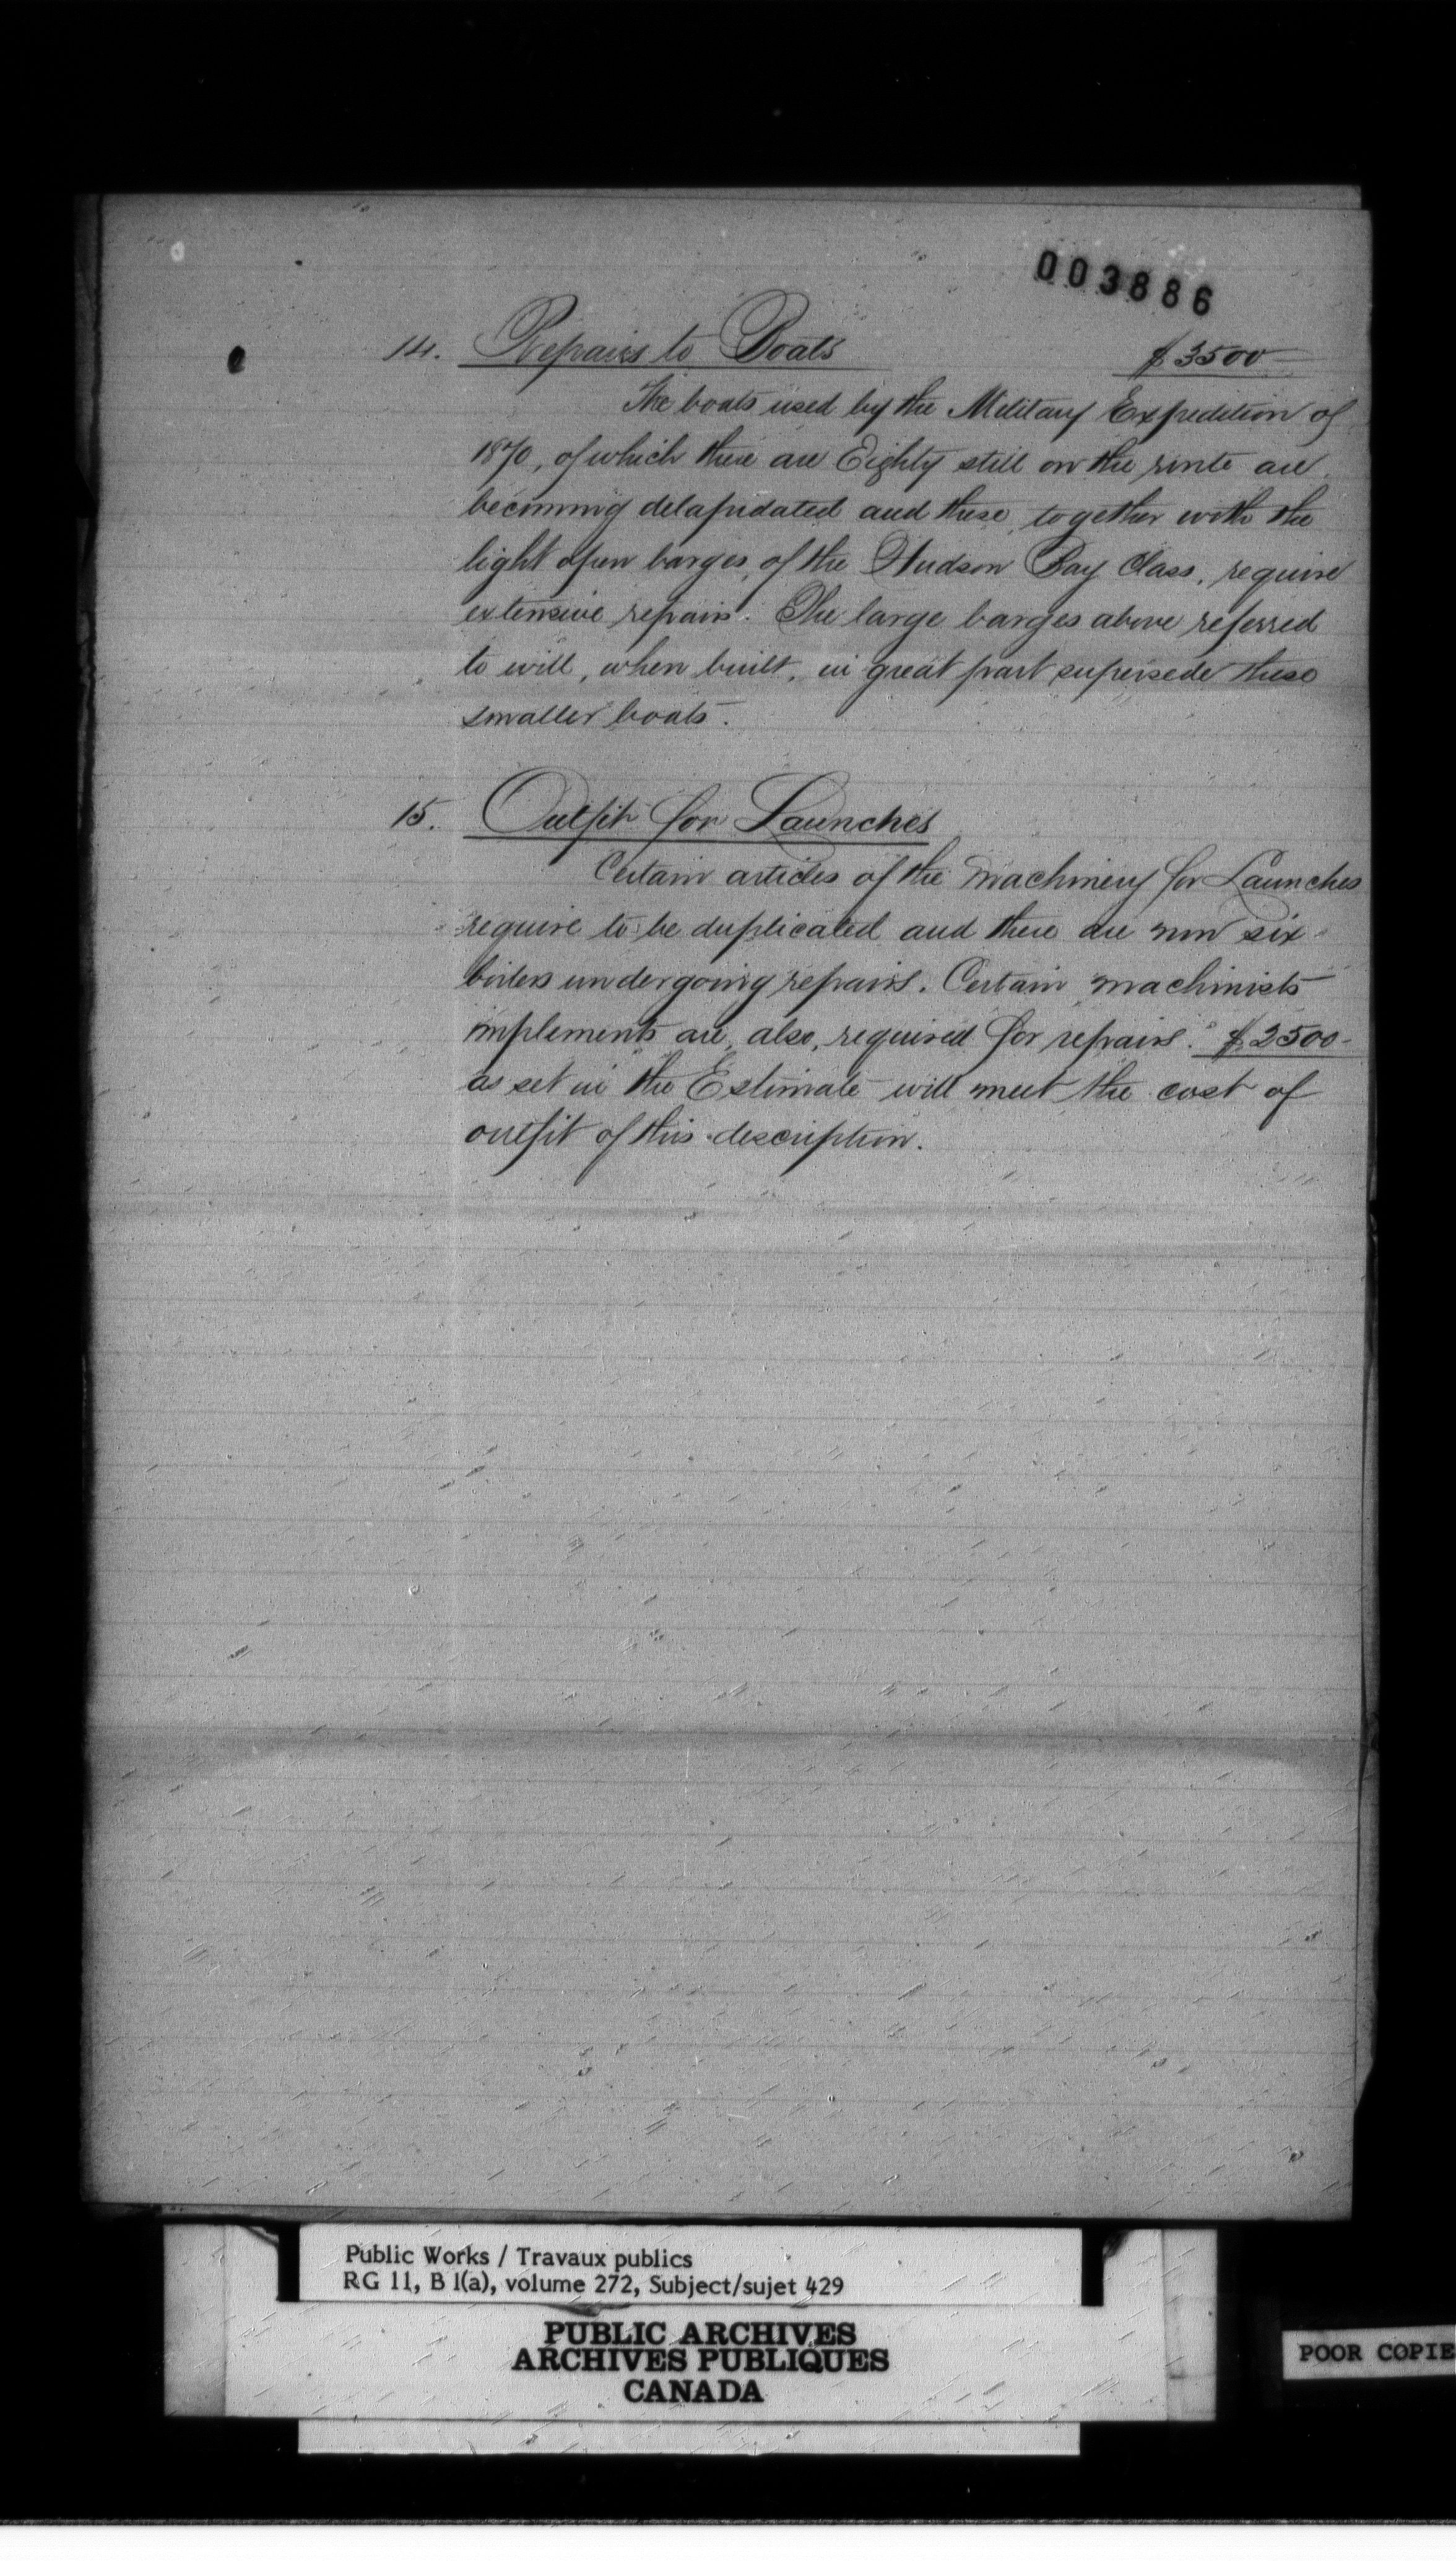 003886
14. Repairs to Boats $3500
The boats used by the Military Expedition of
1870, of which there are Eighty still on the route are
becoming delapidated and these, together with the
light open barges, of the Hudson Bay Class, require
extensive repairs. The large barges above referred
to will, when built, in great part supersede these
smaller boats.
15. Outfit for Launches
Certain articles of the Machinery for Launches
require to be duplicated and there are now six
boilers undergoing repairs. Certain machinists
implements are, also, required for repairs. $2500-
as set in the Estimate will meet the cost of
outfit of this description.
Public Works / Travaux publics
RG 11, B 1(a), volume 272, Subject/sujet 429
PUBLIC ARCHIVES
ARCHIVES PUBLIQUES
CANADA
POOR COPIE